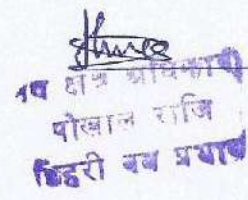 वन क्षेत्र अधिकारी
पोखाल राजि
टिहरी वन प्रभाग